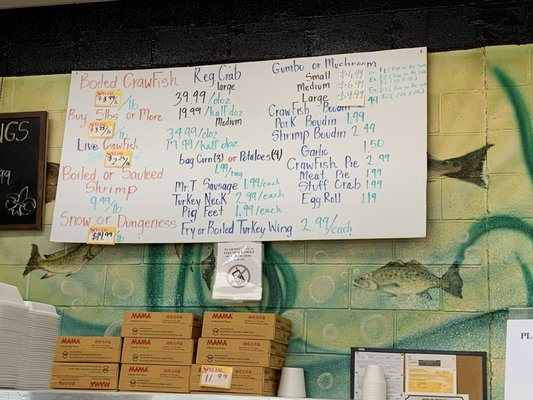 Boiled CrawFish
SPECIAL
$3.99/lb
Buy 5lbs or More
/lb
Live Crawfish
Boiled or Sauteed
Shrimp
9.99/lb
Snow or Dungeness
/lb
Reg Crab
large
39.99/doz
19.99/half doz
Medium
34.99/doz
17.99/half doz
bag Corn(3) or Potatoes(4)
1.99/bag
Mr.T Sausage 1.99/each
Turkey Neck 2.99/each
Pig Feet 1.99/each
Fry or Boiled Turkey Wing 2.99/each
Gumbo or Mushroom
Small $4.99
Medium $6.99
Large $9.99
CrawFish Boudin
Pork Boudin 1.99
Shrimp Boudin 2.49
Garlic 1.50
CrawFish Pie 2.99
Meat Pie 1.99
Stuff Crab 1.99
Egg Roll 1.19
NGS
MAMA
MAMA
MAMA
MAMA
MAMA
MAMA
MAMA
MAMA
11.99